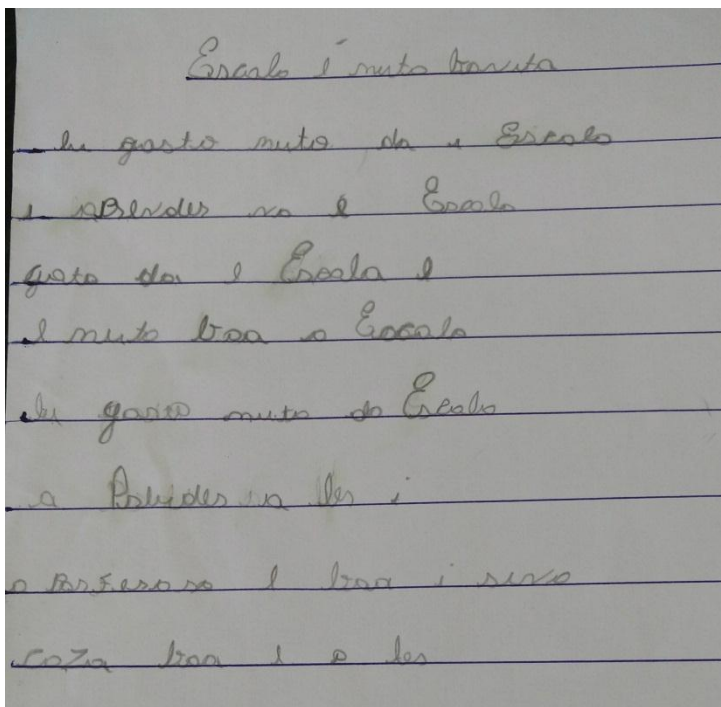 Escola é muto bonita
eu gosto muto da e Escola
e aBendes na e Escola
goto da e Escola e
e muto boa a Escola
eu gosto muto da Escola
a les i
a e boa i
coza boa e a les